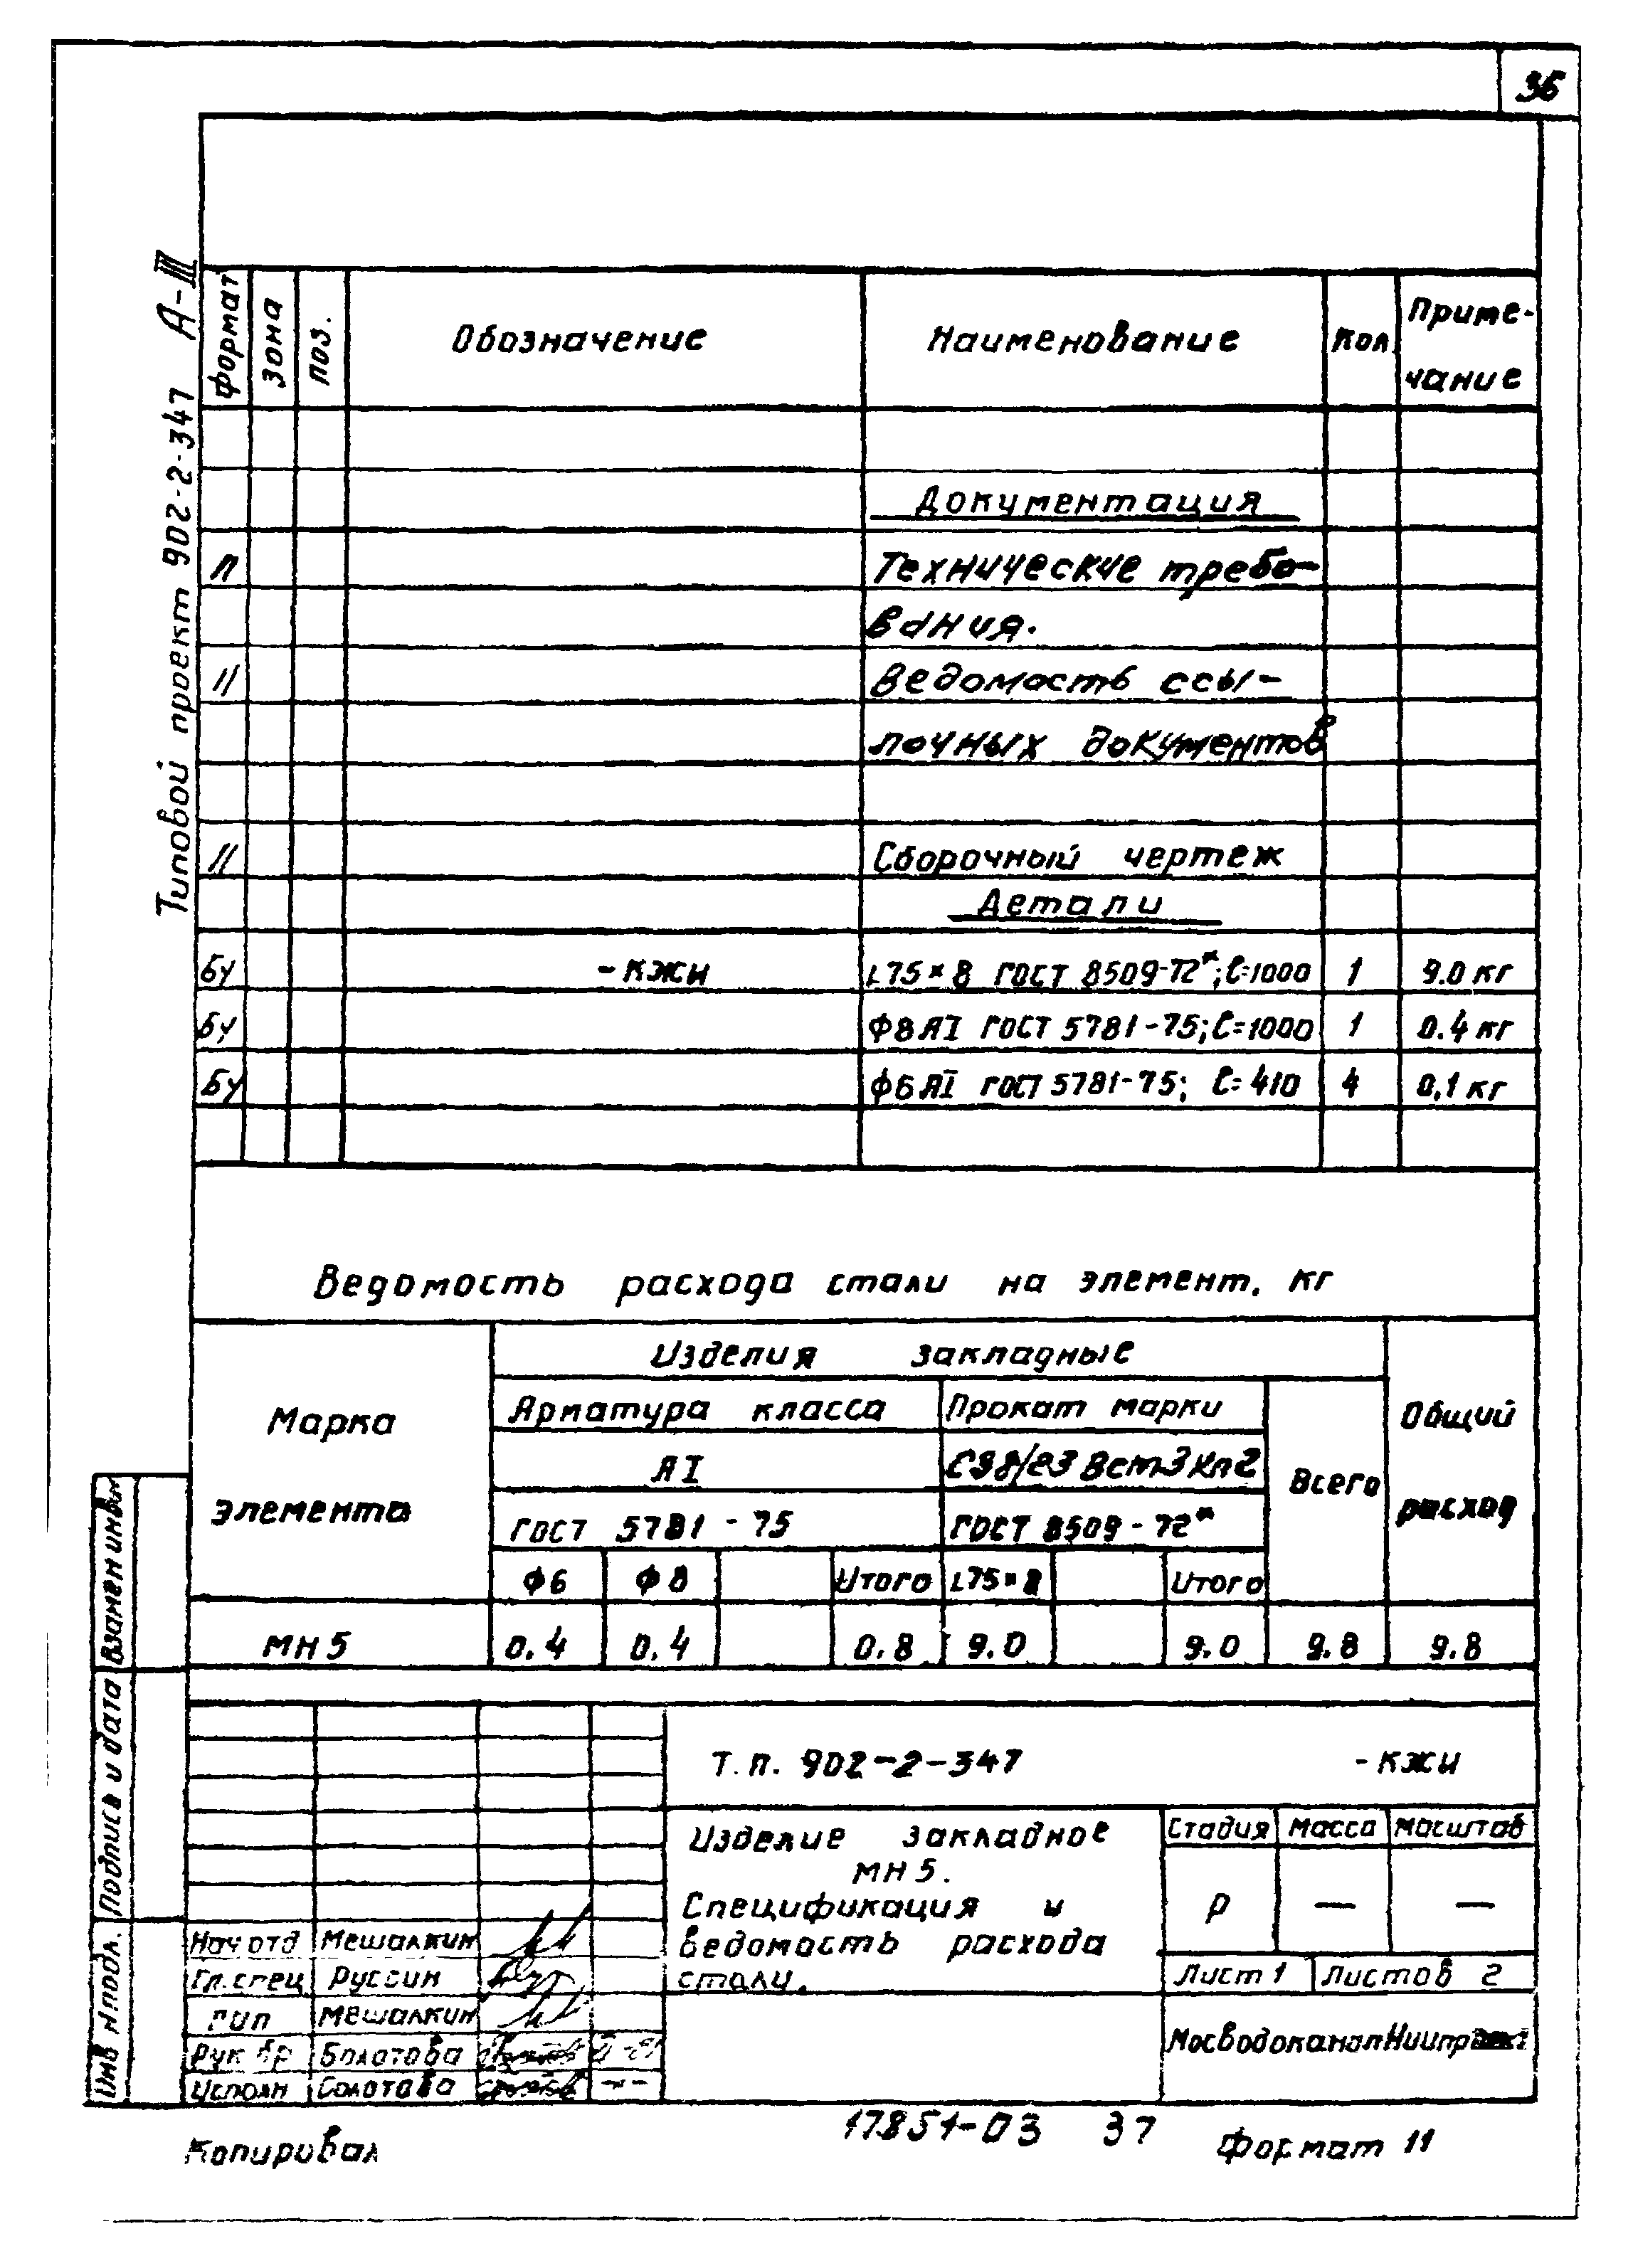 36
Типовой проект 902-2-347 А-III
Формат
Зона
Поз.
Обозначение
Наименование
Кол.
Приме-
чание
Документация
11
Технические требо-
вания.
11
Ведомость ссы-
лочных документов
11
Сборочный чертеж
Детали
БУ
-КЖИ
L75×8 ГОСТ 8509-72*; ℓ=1000
1
9.0 кг
БУ
Ф8АI ГОСТ 5781-75; ℓ=1000
1
0.4 кг
БУ
Ф6АI ГОСТ 5781-75; ℓ=410
4
0,1 кг
Ведомость расхода стали на элемент, кг
Марка
элемента
Изделия закладные
Общий
расход
Арматура класса
Прокат марки
Всего
АI
С38/23 Вст3кп2
ГОСТ 5781-75
ГОСТ 8509-72*
Ф6
Ф8
Итого
L75×8
Итого
МН5
0.4
0.4
0.8
9.0
9.0
9.8
9.8
Взамен инв№
Подпись и дата
Инв № подл.
Т.п. 902-2-347
-КЖИ
Изделие закладное
МН5.
Спецификация и
ведомость расхода
стали.
Стадия
Масса
Масштаб
Р
—
—
Лист 1
Листов 2
Нач отд
Мешалкин
Гл.спец
Руссин
ГИП
Мешалкин
Рук бр
Болотова
Исполн
Солотава
МосводоканалНиипроект
Копировал
17851-03 37
Формат 11